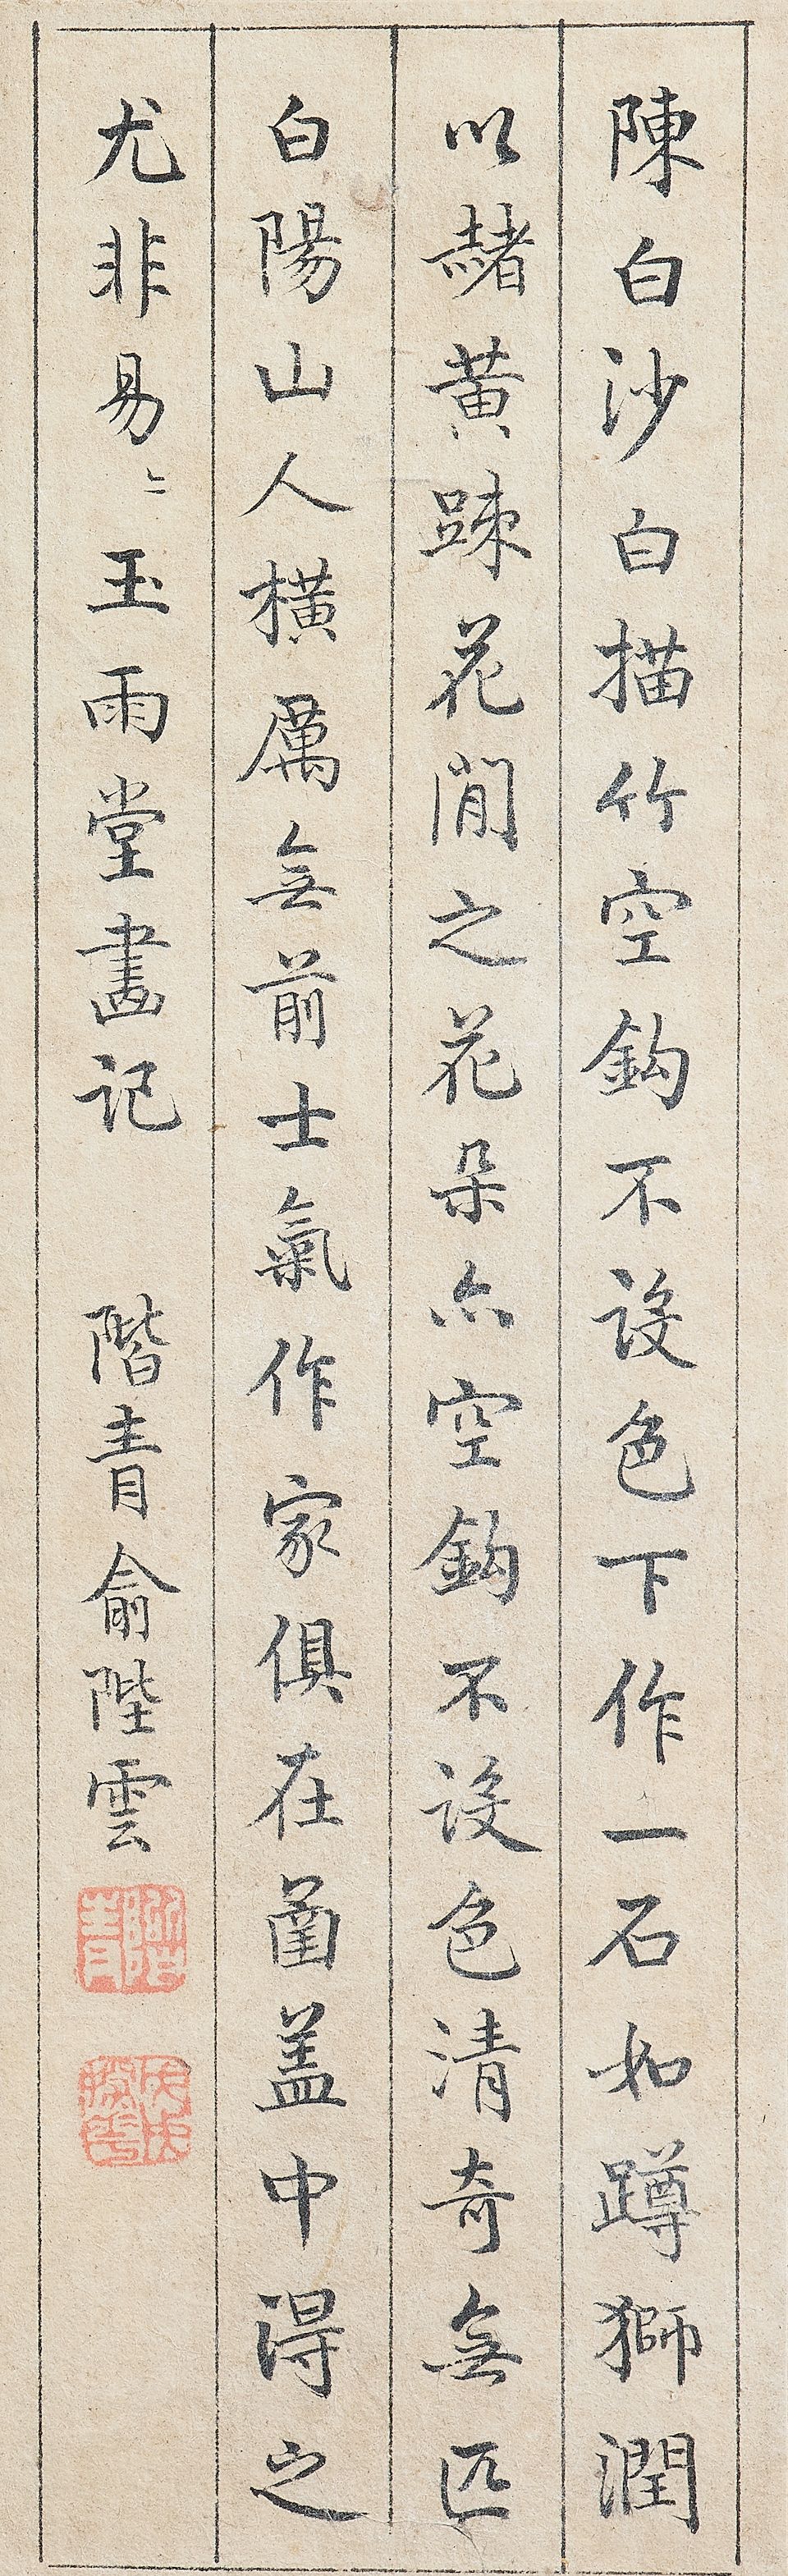 陳白沙白描竹空鈎不設色下作一石如蹲獅潤
以赭黃踈花閒之花朵亦空鈎不設色清奇無匹
白陽山人橫厲無前士氣作家俱在圖蓋中得之
尤非易〻玉雨堂畫記 階青俞陛雲
階青